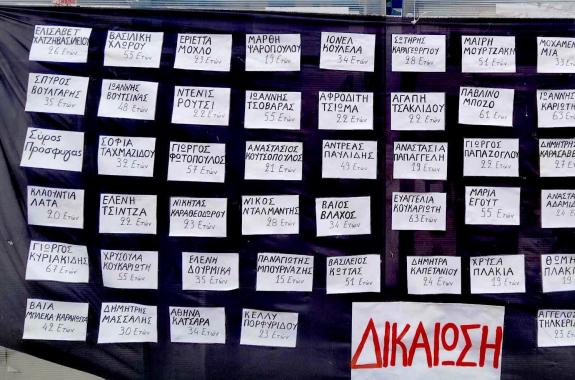 ΕΛΙΣΑΒΕΤ
ΧΑΤΖΗΒΑΣΙΛΕΙΟΥ
26 Ετών
ΒΑΣΙΛΙΚΗ
ΧΛΩΡΟΥ
55 Ετών
ΕΡΙΕΤΤΑ
ΜΟΛΧΟ
23 Ετών
ΜΑΡΘΗ
ΨΑΡΟΠΟΥΛΟΥ
19 Ετών
ΙΟΝΕΛ
ΚΟΥΛΕΛΑ
34 Ετών
ΣΩΤΗΡΗΣ
ΚΑΡΑΓΕΩΡΓΙΟΥ
28 Ετών
ΜΑΙΡΗ
ΜΟΥΡΤΖΑΚΗ
51 Ετών
ΣΠΥΡΟΣ
ΒΟΥΛΓΑΡΗΣ
35 Ετών
ΙΩΑΝΝΗΣ
ΒΟΥΤΣΙΝΑΣ
48 Ετών
ΝΤΕΝΙΣ
ΡΟΥΤΣΙ
22 Ετών
ΙΩΑΝΝΗΣ
ΤΣΟΒΑΡΑΣ
55 Ετών
ΑΦΡΟΔΙΤΗ
ΤΣΙΩΜΑ
22 Ετών
ΑΓΑΠΗ
ΤΣΑΚΛΙΔΟΥ
22 Ετών
ΠΑΒΛΙΝΟ
ΜΠΟΖΟ
61 Ετών
Σύρος
Πρόσφυγας
ΣΟΦΙΑ
ΤΑΧΜΑΖΙΔΟΥ
32 Ετών
ΓΙΩΡΓΟΣ
ΦΩΤΟΠΟΥΛΟΣ
57 Ετών
ΑΝΑΣΤΑΣΙΟΣ
ΚΟΥΤΣΟΠΟΥΛΟΣ
21 Ετών
ΑΝΤΡΕΑΣ
ΠΑΥΛΙΔΗΣ
43 Ετών
ΑΝΑΣΤΑΣΙΑ
ΠΑΠΑΓΓΕΛΗ
19 Ετών
ΓΙΩΡΓΟΣ
ΠΑΠΑΖΟΓΛΟΥ
22 Ετών
ΚΛΑΟΥΝΤΙΑ
ΛΑΤΑ
20 Ετών
ΕΛΕΝΗ
ΤΣΙΝΤΖΑ
22 Ετών
ΝΙΚΗΤΑΣ
ΚΑΡΑΘΕΟΔΩΡΟΥ
23 Ετών
ΝΙΚΟΣ
ΝΤΑΛΜΑΝΤΗΣ
28 Ετών
ΒΑΙΟΣ
ΒΛΑΧΟΣ
34 Ετών
ΕΥΑΓΓΕΛΙΑ
ΚΟΥΚΑΡΙΩΤΗ
63 Ετών
ΜΑΡΙΑ
ΕΓΟΥΤ
55 Ετών
ΓΙΩΡΓΟΣ
ΚΥΡΙΑΚΙΔΗΣ
67 Ετών
ΧΡΥΣΟΥΛΑ
ΚΟΥΚΑΡΙΩΤΗ
55 Ετών
ΕΛΕΝΗ
ΔΟΥΡΜΙΚΑ
35 Ετών
ΠΑΝΑΓΙΩΤΗΣ
ΜΠΟΥΡΝΑΖΗΣ
15 Ετών
ΒΑΣΙΛΕΙΟΣ
ΚΩΤΤΑΣ
51 Ετών
ΔΗΜΗΤΡΑ
ΚΑΠΕΤΑΝΙΟΥ
24 Ετών
ΧΡΥΣΑ
ΠΛΑΚΙΑ
ΒΑΙΑ
ΜΠΛΕΚΑ
42 Ετών
ΔΗΜΗΤΡΗΣ
ΜΑΣΣΑΛΗΣ
30 Ετών
ΑΘΗΝΑ
ΚΑΤΣΑΡΑ
34 Ετών
ΚΕΛΛΥ
ΠΟΡΦΥΡΙΔΟΥ
23 Ετών
ΔΙΚΑΙΩΣΗ